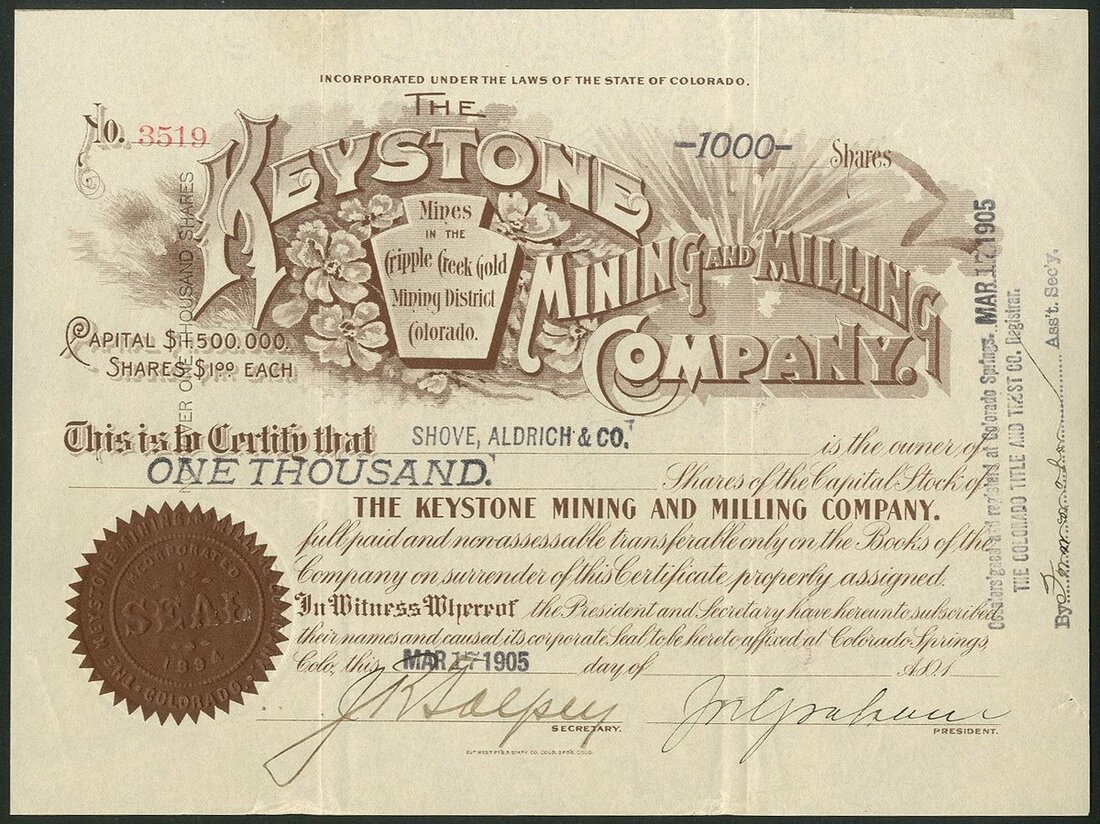 INCORPORATED UNDER THE LAWS OF THE STATE OF COLORADO.
No. 3519
-1000- Shares
THE
KEYSTONE
MINING AND MILLING
COMPANY.
Mines
IN THE
Cripple Creek Gold
Mining District
Colorado.
CAPITAL $1,500.000.
SHARES $1.00 EACH
OVER ONE THOUSAND SHARES
This is to Certify that SHOVE, ALDRICH & CO. is the owner of
ONE THOUSAND. Shares of the Capital Stock of
THE KEYSTONE MINING AND MILLING COMPANY.
full paid and non-assessable transferable only on the Books of the
Company on surrender of this Certificate, properly assigned.
In Witness Whereof the President and Secretary have hereunto subscribed
their names and caused its corporate Seal to be hereto affixed at Colorado Springs,
Colo, this MAR 17 1905 day of A.D.1
SECRETARY.
PRESIDENT.
THE KEYSTONE MINING
INCORPORATED
SEAL
COLORADO
Countersigned and registered at Colorado Springs. MAR 17 1905
THE COLORADO TITLE AND TRUST CO. Registrar.
By Ass't. Sec'y.